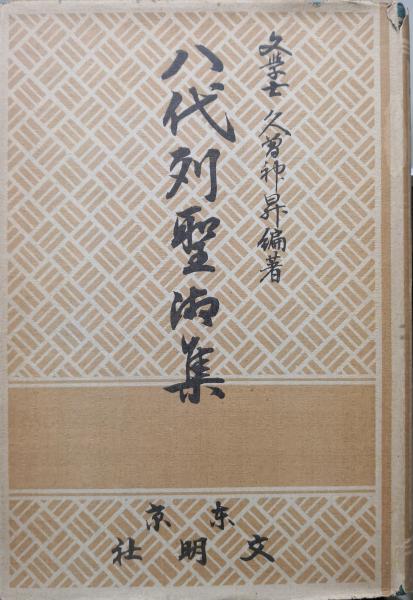 文学士 久曽神昇編著
八代列聖御集
東京
文明社